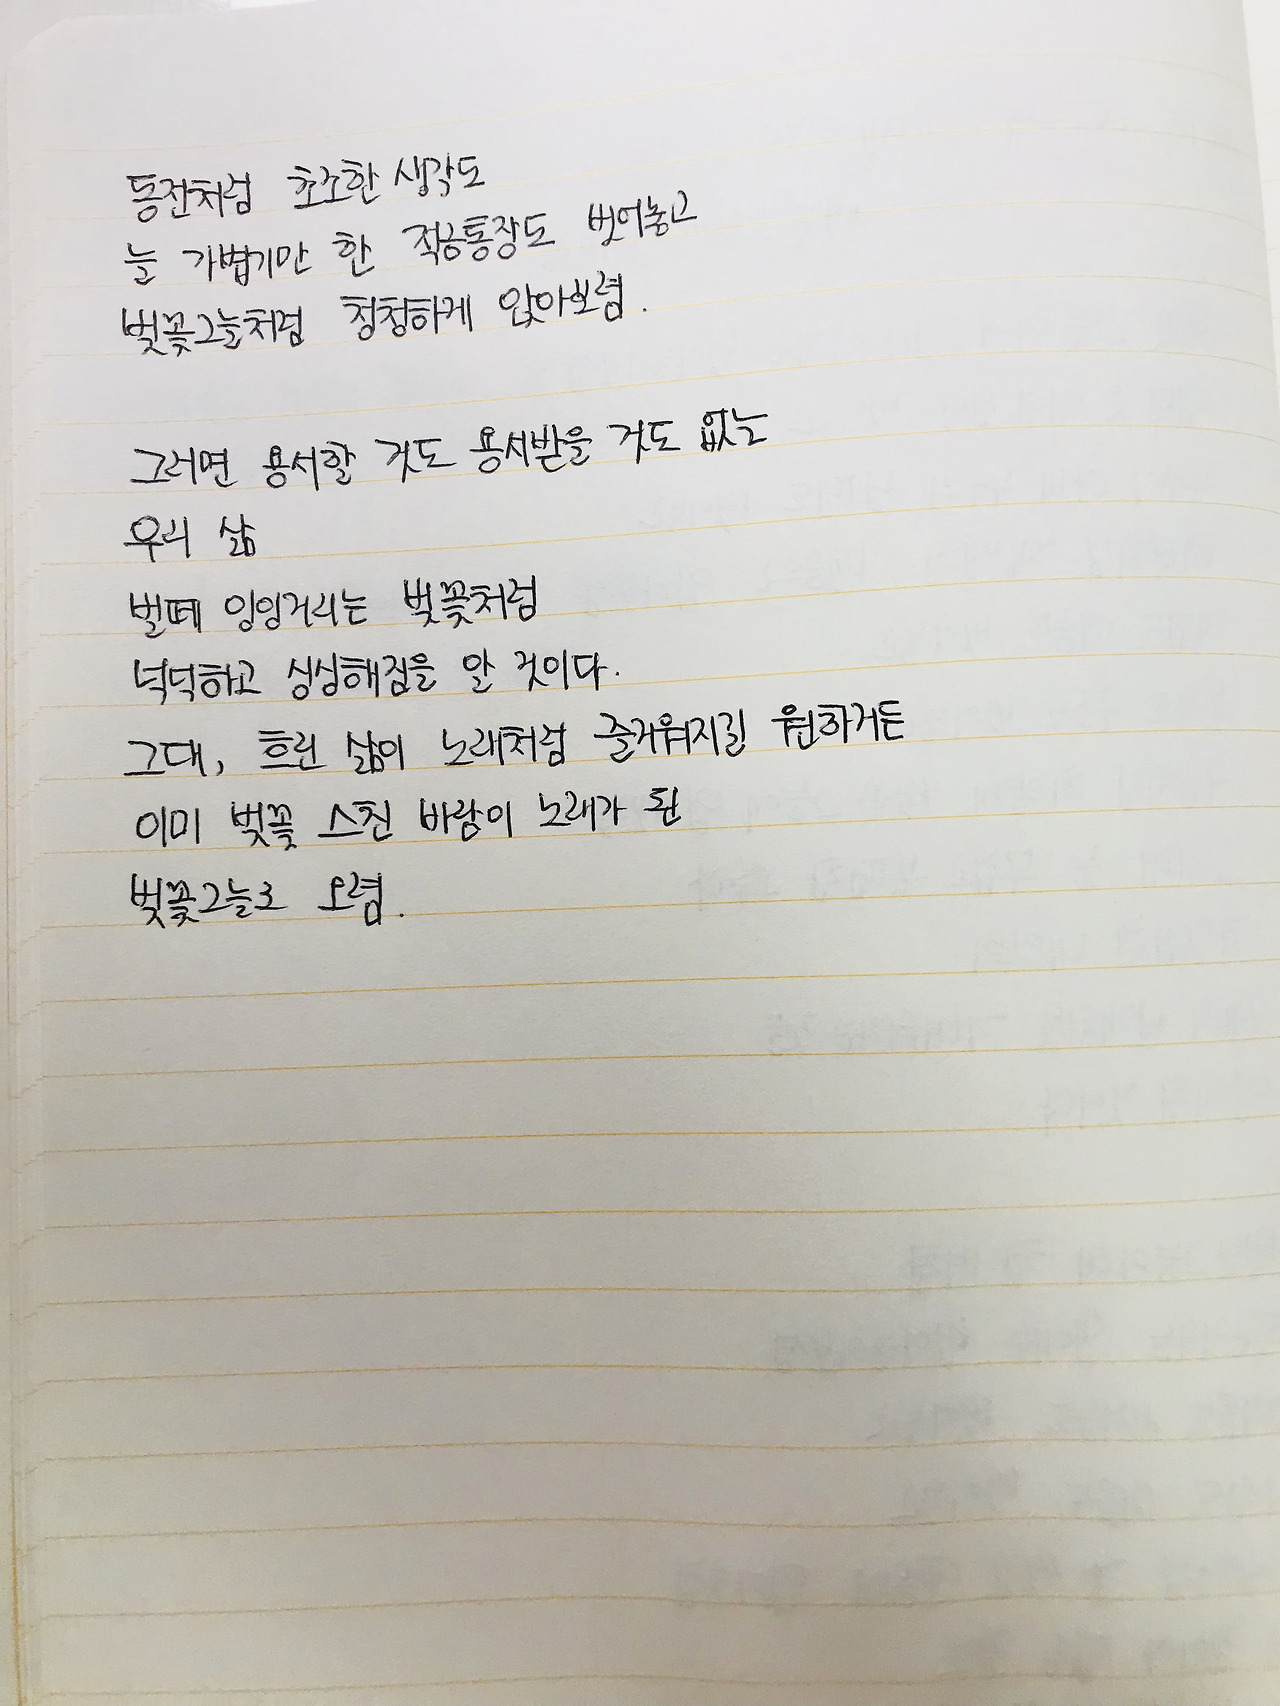 동전처럼 초조한 생각도
늘 가볍기만 한 적금통장도 벗어놓고
벚꽃그늘처럼 청청하게 앉아보렴.
그러면 용서할 것도 용서받을 것도 없는
우리 삶
벌떼 잉잉거리는 벚꽃처럼
넉넉하고 싱싱해짐을 알 것이다.
그대, 흐린 삶이 노래처럼 즐거워지길 원하거든
이미 벚꽃 스친 바람이 노래가 된
벚꽃그늘로 오렴.